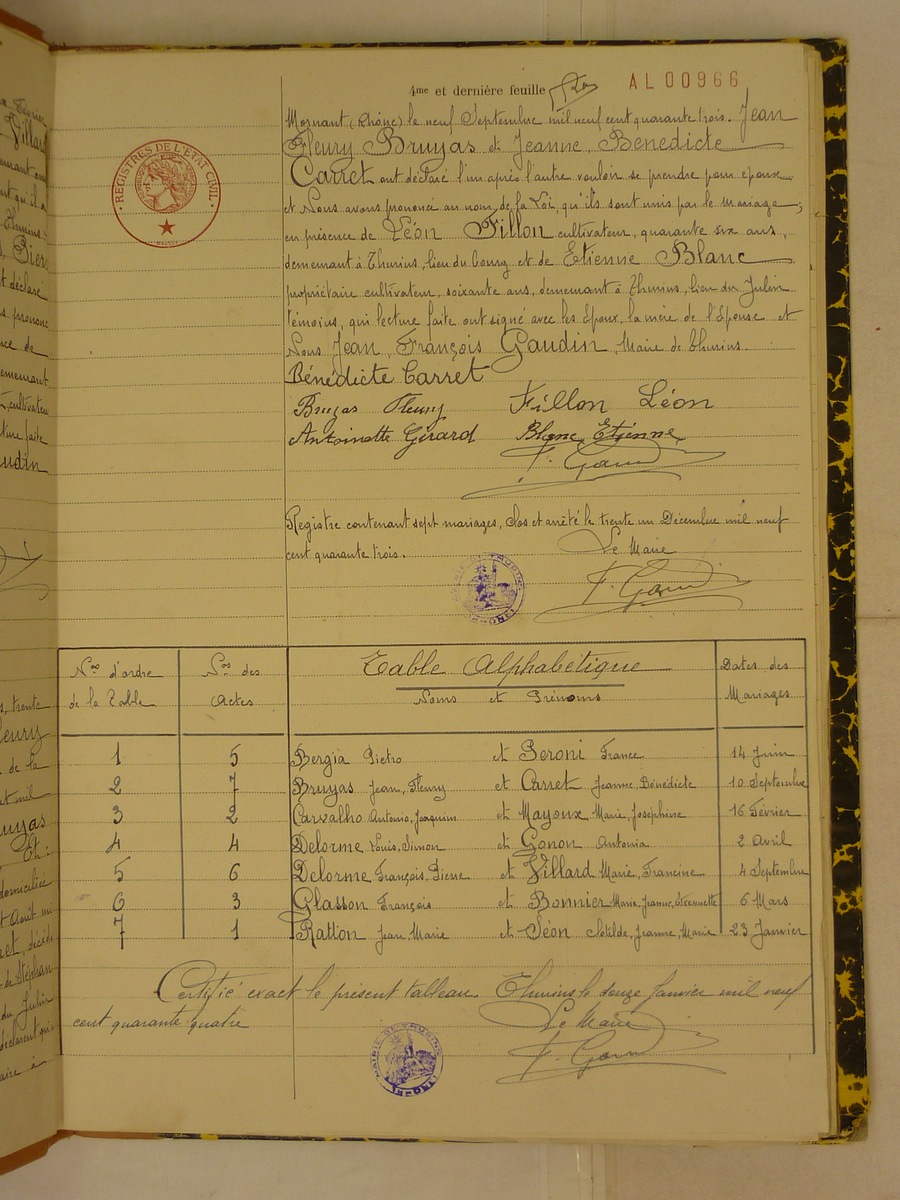 4me et dernière feuille
AL00966
Mornant (Rhône) le neuf Septembre mil neuf cent quarante trois. Jean
Fleury Bruyas et Jeanne, Bénédicte
Carret ont déclaré l'un après l'autre vouloir se prendre pour époux
et Nous avons prononcé au nom de la Loi, qu'ils sont unis par le mariage;
en présence de Léon Fillon cultivateur, quarante six ans,
demeurant à Thurins, lieu du Bourg et de Etienne Blanc
propriétaire cultivateur, soixante ans, demeurant à Thurins, lieu du Julin
témoins, qui lecture faite ont signé avec les Epoux, la mère de l'Epouse et
Nous Jean, François Gaudin, Maire de Thurins.
Bénédicte Carret
Bruyas Fleury Fillon Léon
Antoinette Girard Blanc Etienne
F. Gaudin
REGISTRES DE L'ETAT CIVIL
Registre contenant sept mariages, clos et arrêté le trente un Décembre mil neuf
cent quarante trois. Le Maire
F. Gaudin
MAIRIE DE THURINS (RHONE)
Nos d'ordre de la Table
Nos des Actes
Table Alphabétique
Noms et Prénoms
Dates des Mariages
1 5 Bergia Pietro et Peroni France 14 Juin
2 7 Bruyas Jean, Fleury et Carret Jeanne, Bénédicte 10 Septembre
3 2 Carvalho Antonio, Joaquim et Mayoux Marie, Joséphine 16 Février
4 4 Delorme Louis, Simon et Gonon Antonia 2 Avril
5 6 Delorme François, Pierre et Villard Marie, Francine 4 Septembre
6 3 Glasson François et Bonnier Marie, Jeanne, 6 Mars
7 1 Ratton Jean, Marie et Séon Clotilde, Jeanne, Marie 23 Janvier
Certifié exact le présent tableau Thurins le douze Janvier mil neuf
cent quarante quatre Le Maire
F. Gaudin
MAIRIE DE THURINS (RHONE)